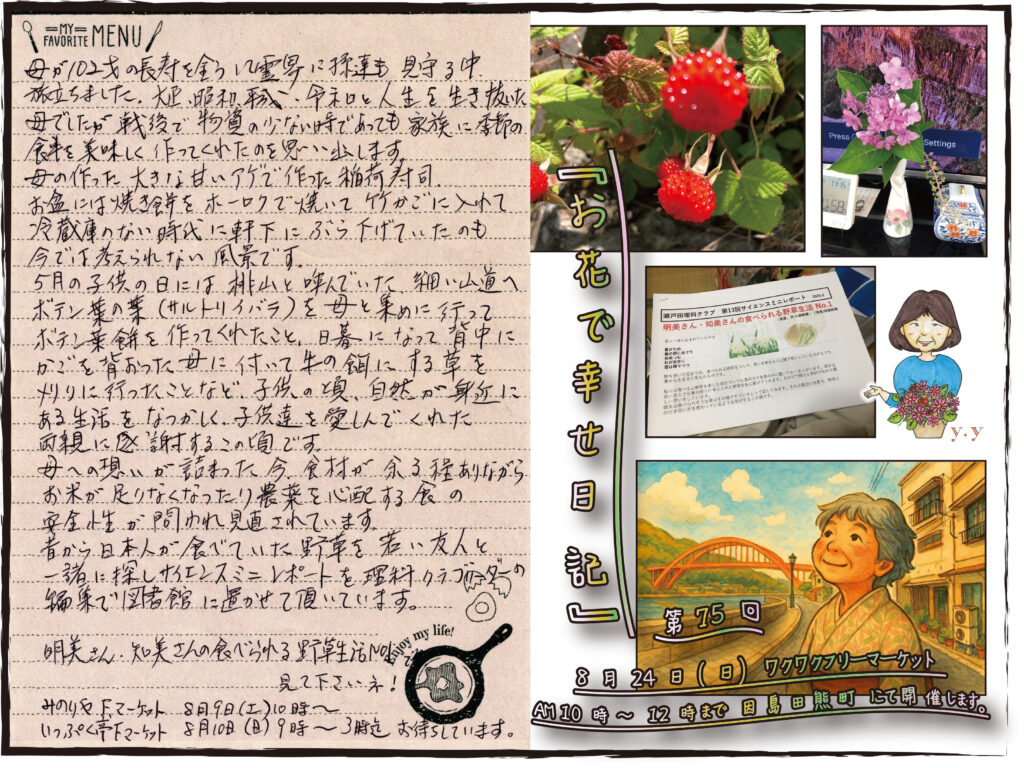 MY FAVORITE MENU
母が102才の長寿を全うして霊界に孫達も見守る中
旅立ちました。大正、昭和、平成、令和と人生を生き抜いた
母でしたが戦後で物質の少ない時であっても家族に季節の
食事を美味しく作ってくれたのを思い出します。
母の作った大きな甘いアゲで作った稲荷寿司。
お盆には焼き餅をホーロクで焼いて竹かごに入れて
冷蔵庫のない時代に軒下にぶら下げていたのも
今では考えられない風景です。
5月の子供の日には桃山と呼んでいた細い山道へ
ボテン葉の葉(サルトリイバラ)を母と集めに行って
ボテン葉餅を作ってくれたこと。日暮になって背中に
かごを背おった母に付いて牛の餌にする草を
刈りに行ったことなど、子供の頃、自然が身近に
ある生活をなつかしく、子供達を愛しんでくれた
両親に感謝するこの頃です。
母への想いが詰まった今、食材が余る程ありながら
お米が足りなくなったり農薬を心配する食の
安全性が問われ見直されています。
昔から日本人が食べていた野草を若い友人と
一諸に探しサイエンスミニレポートを理科クラブリーダーの
編集で図書館に置かせて頂いています。
明美さん・知美さんの食べられる野草生活No1
見て下さいネ!
Enjoy my life!
みのりや下マーケット 8月9日(土)10時〜
いっぷく亭下マーケット 8月10日(日)9時〜3時迄 お待ちしています。
『お花で幸せ日記』
第75回
Press
Settings
瀬戸田理科クラブ 第13回サイエンスミニレポート
明美さん・知美さんの食べられる野草生活 No.1
y.y
8月24日(日)ワクワクフリーマーケット
AM10時〜12時まで因島田熊町にて開催します。